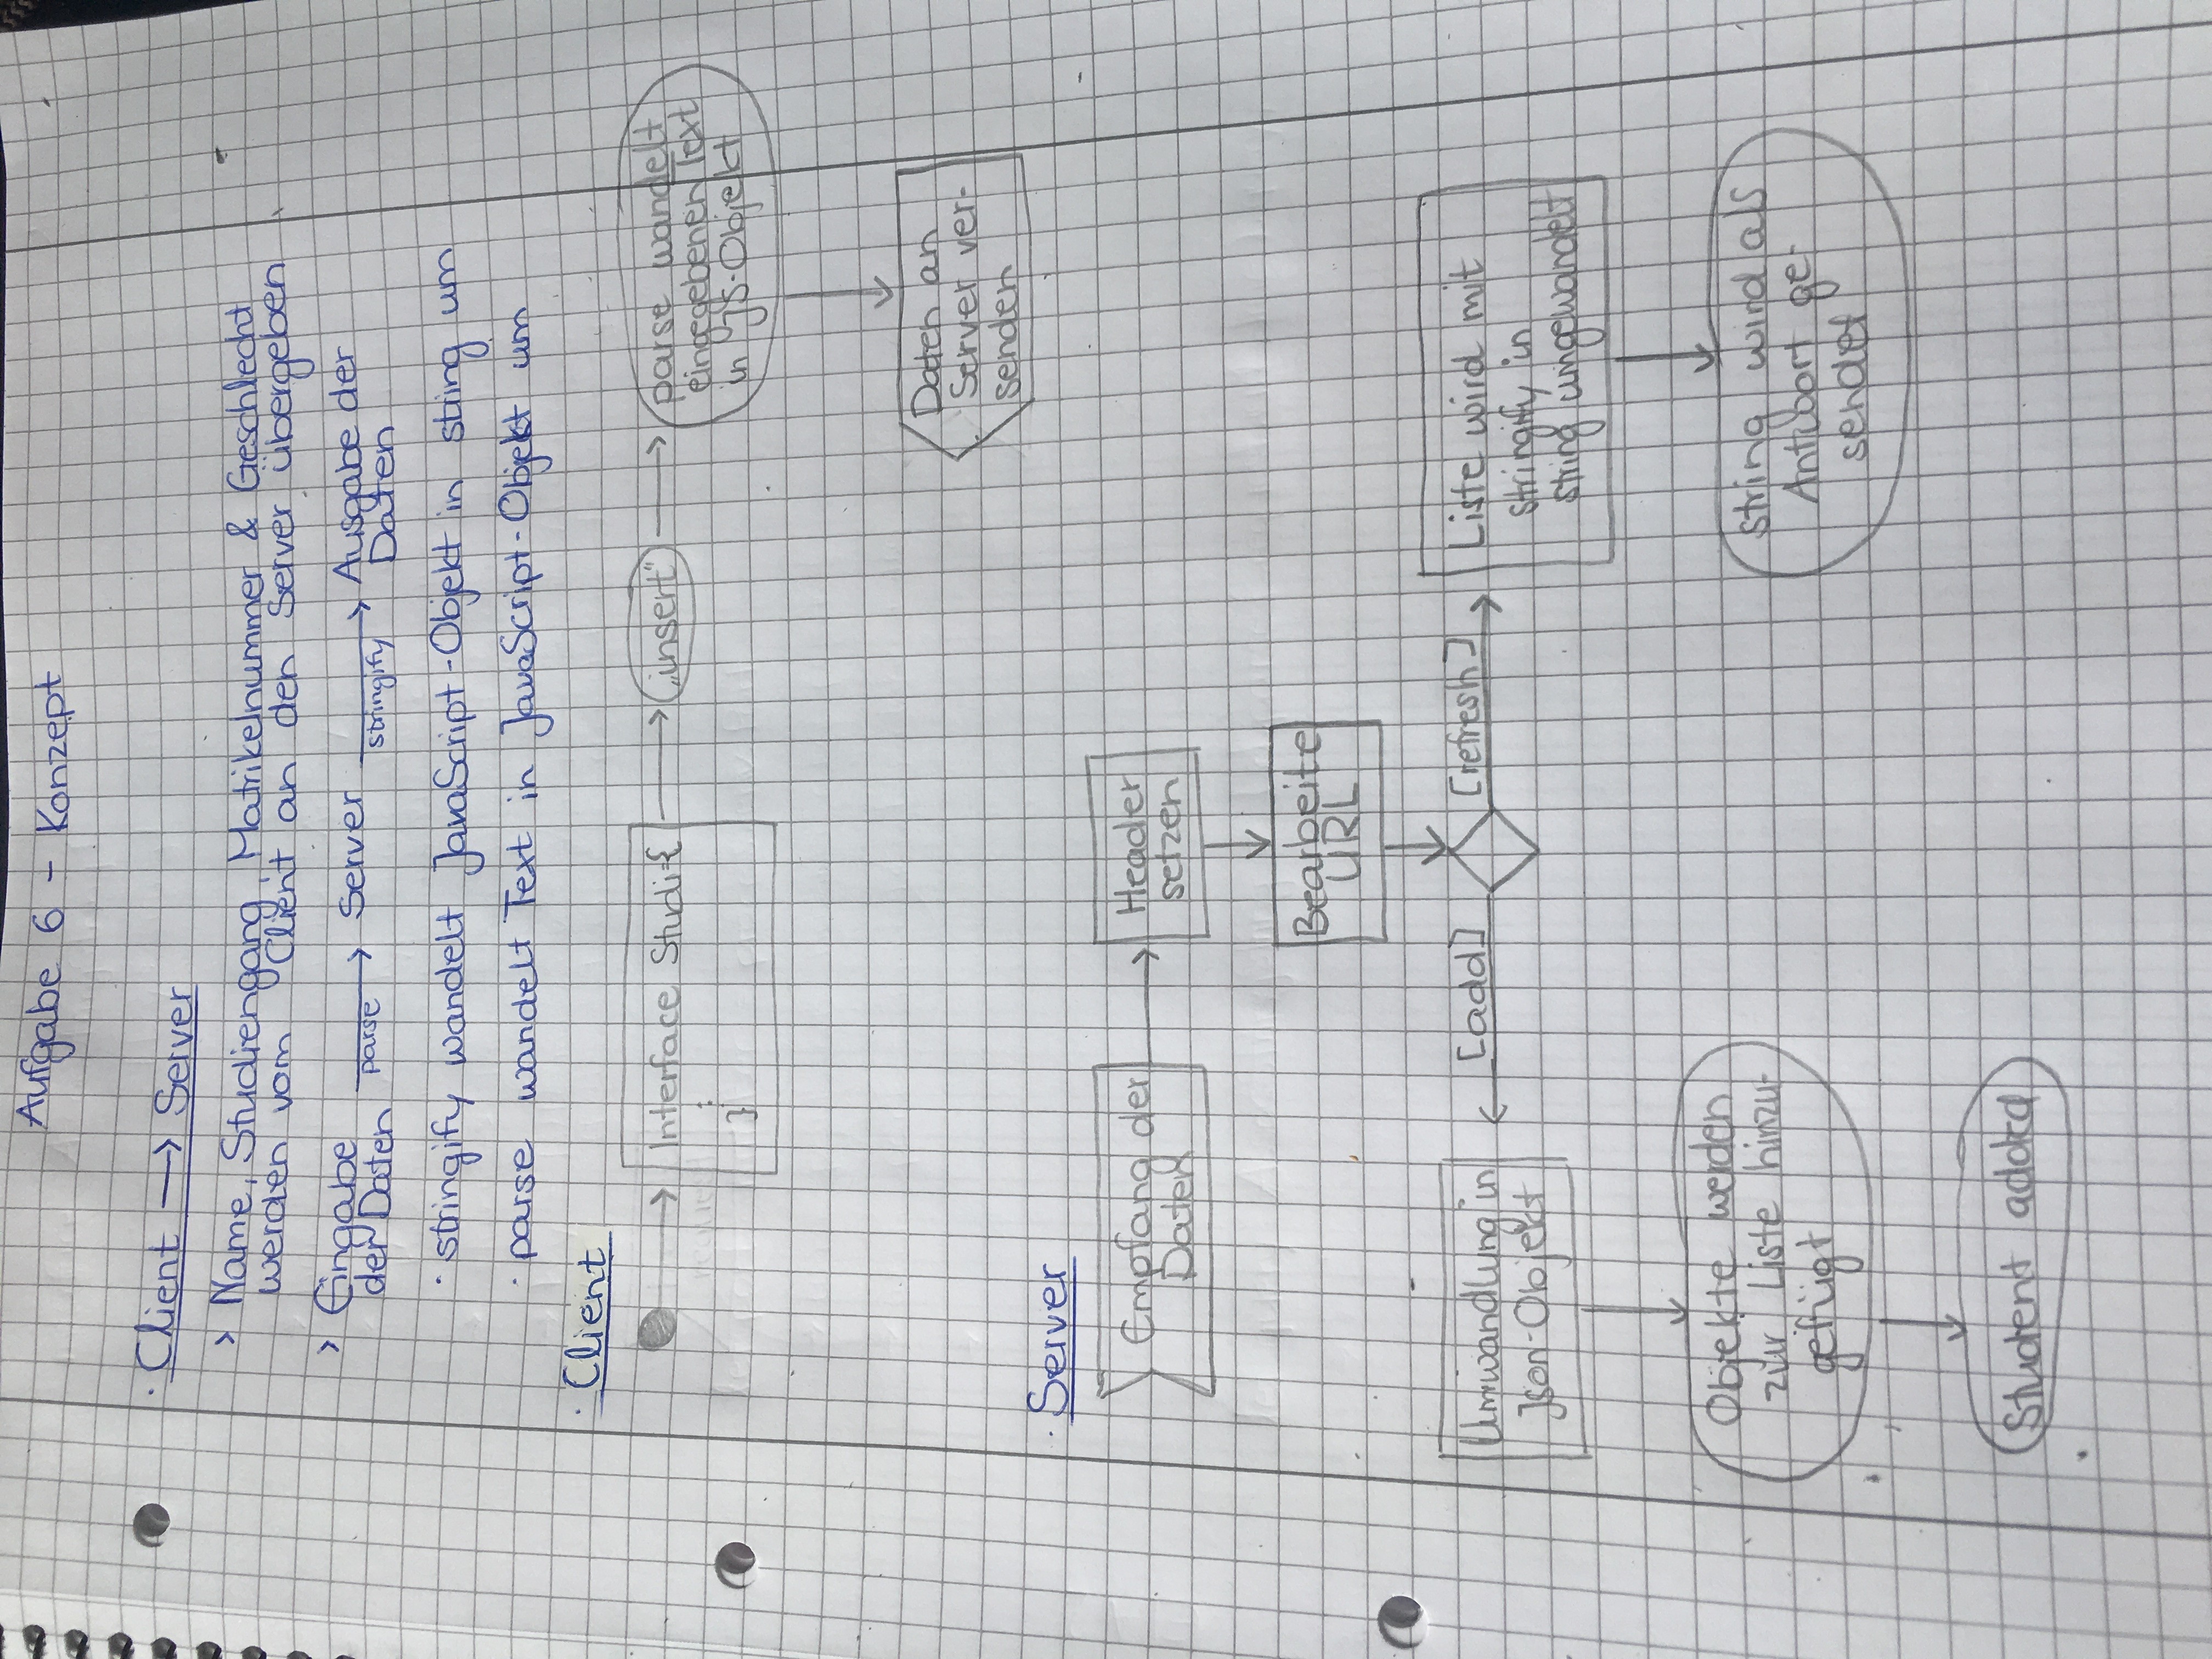 Aufgabe 6 - Konzept
· Client → Server
> Name, Studiengang, Matrikelnummer & Geschlecht
werden vom Client an den Server übergeben
> Eingabe
der Daten
parse
→ Server
stringify
→ Ausgabe der
Daten
· stringify wandelt JavaScript-Objekt in string um
· parse wandelt Text in JavaScript-Objekt um
· Client
Interface Studi {
:
}
„insert"
parse wandelt
eingegebenen Text
in JS-Objekt
Daten an
Server ver-
senden
· Server
Empfang der
Daten
Header
setzen
Bearbeite
URL
[add]
[refresh]
Umwandlung in
Json-Objekt
Liste wird mit
stringify in
string umgewandelt
Objekte werden
zur Liste hinzu-
gefügt
string wird als
Antwort ge-
sendet
Student added